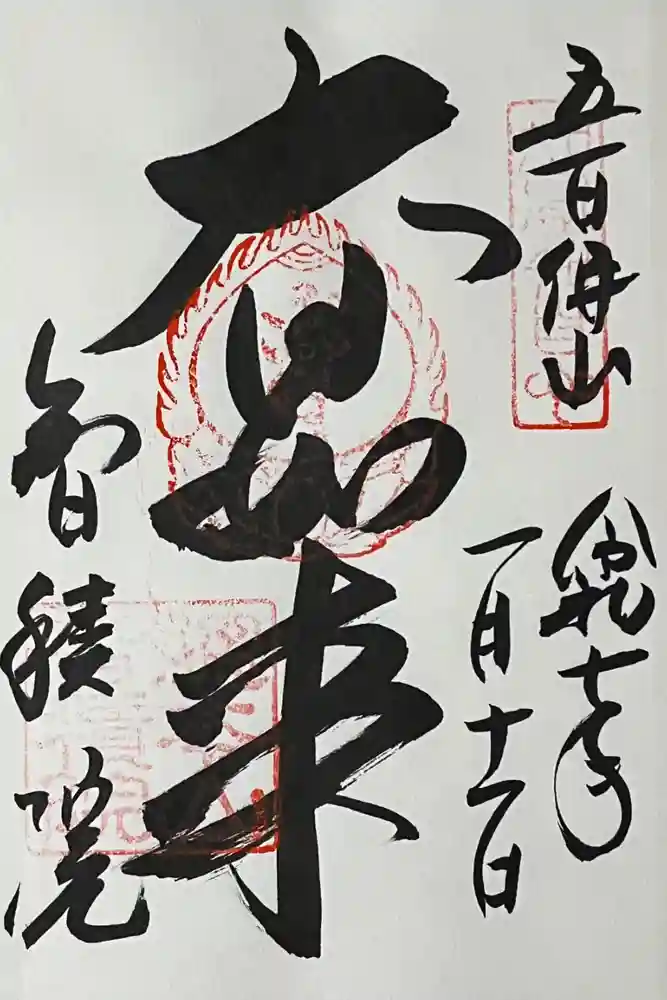 五百佛山
令和七年
一月十二日
大日如来
智積院